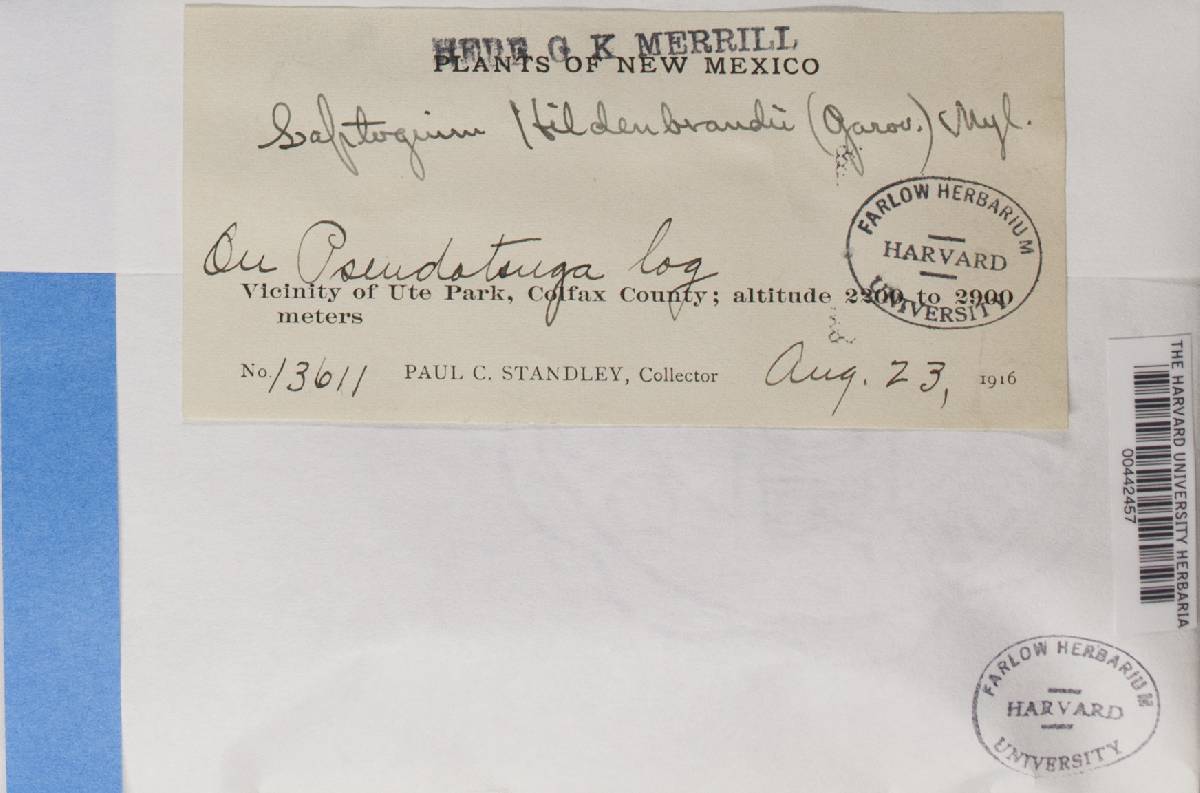 HERB G K MERRILL
PLANTS OF NEW MEXICO
Leptogium Hildenbrandii (Garov.) Nyl.
FARLOW HERBARIUM
HARVARD
UNIVERSITY
On Pseudotsuga log
Vicinity of Ute Park, Colfax County; altitude 2200 to 2900
meters
No. 13611 PAUL C. STANDLEY, Collector Aug. 23, 1916
THE HARVARD UNIVERSITY HERBARIA
00442457
FARLOW HERBARIUM
HARVARD
UNIVERSITY